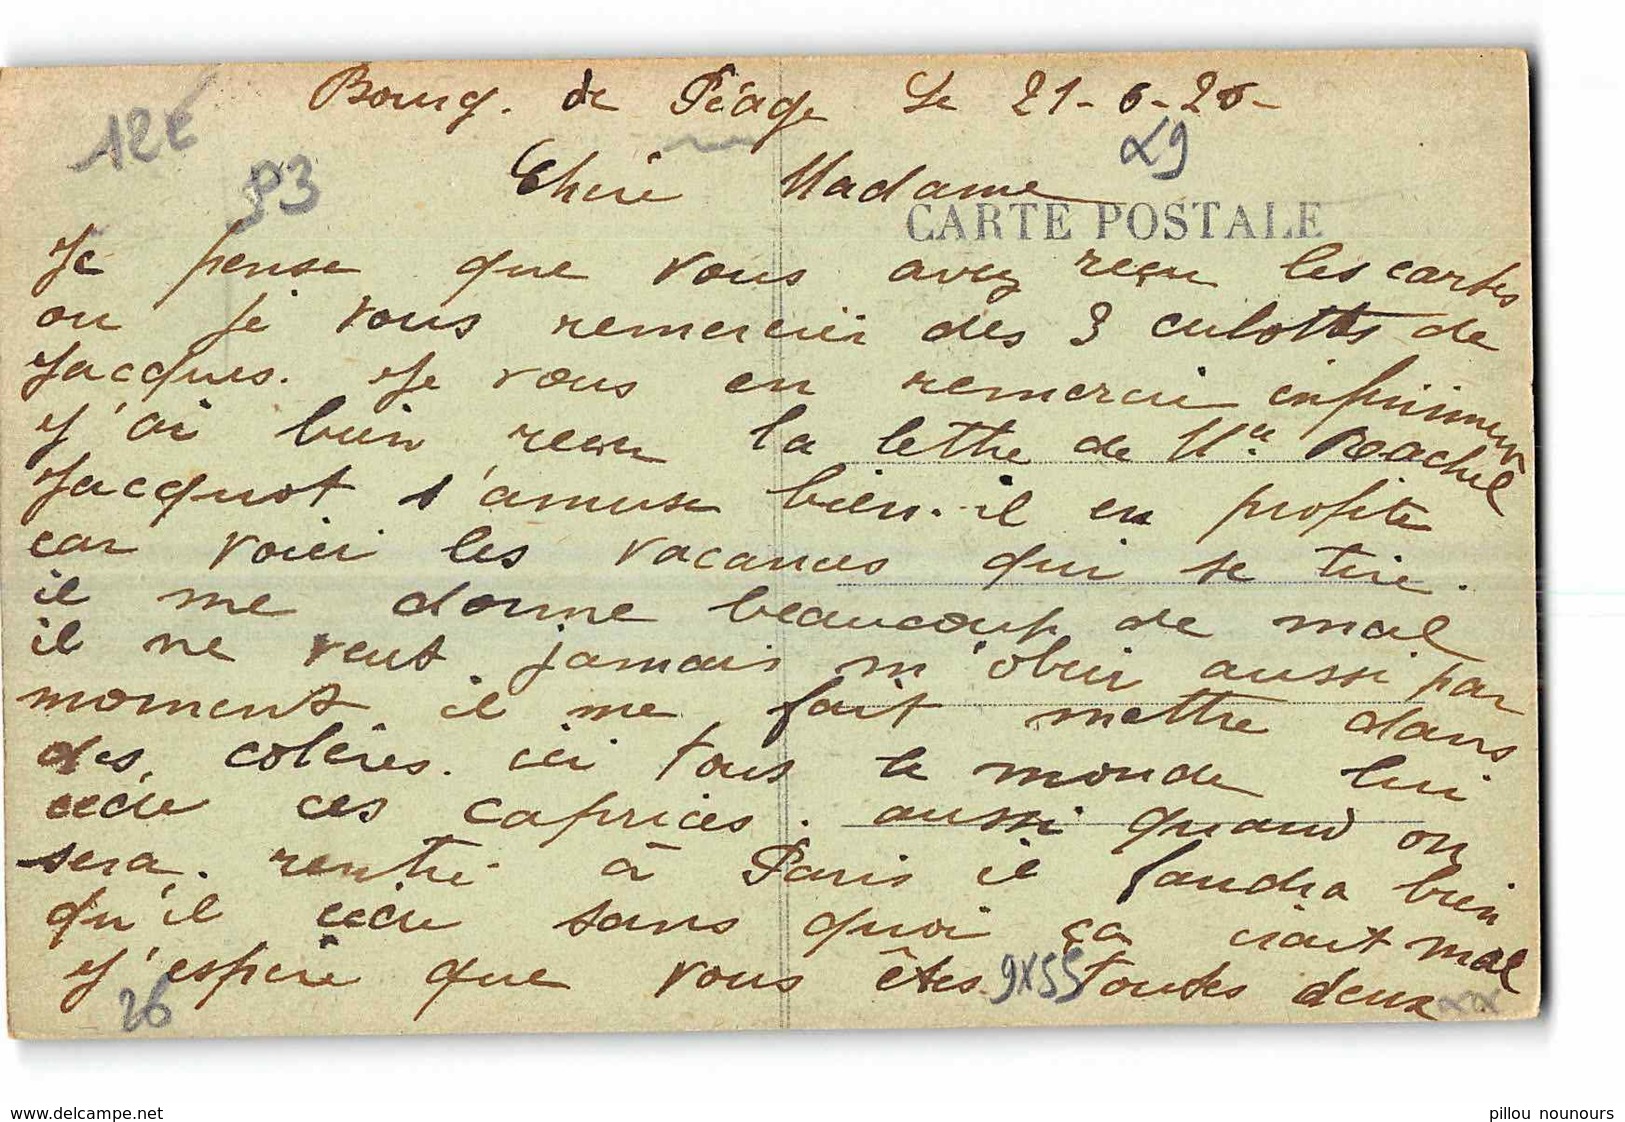 Bourg. de Péage Le 21-6-26-
12€
P3
29
Chère Madame
CARTE POSTALE
Je pense que vous avez reçu les cartes
ou je vous remercier des 3 culottes de
Jacques. Je vous en remerci infiniment
J'ai bien reçu la lettre de Mlle. Rachel
Jacquot s'amuse bien. il en profite
car voici les vacances qui se tire.
il me donne beaucoup de mal
il ne veut jamais m'obeir aussi par
moment il me fait mettre dans
des colères. ici tous le monde lui
cède ces caprices. aussi quand on
sera. rentré à Paris il faudra bien
qu'il cède sans quoi ça irait mal
J'espère que vous êtes toutes deux
9X55
26
www.delcampe.net
pillou nounours